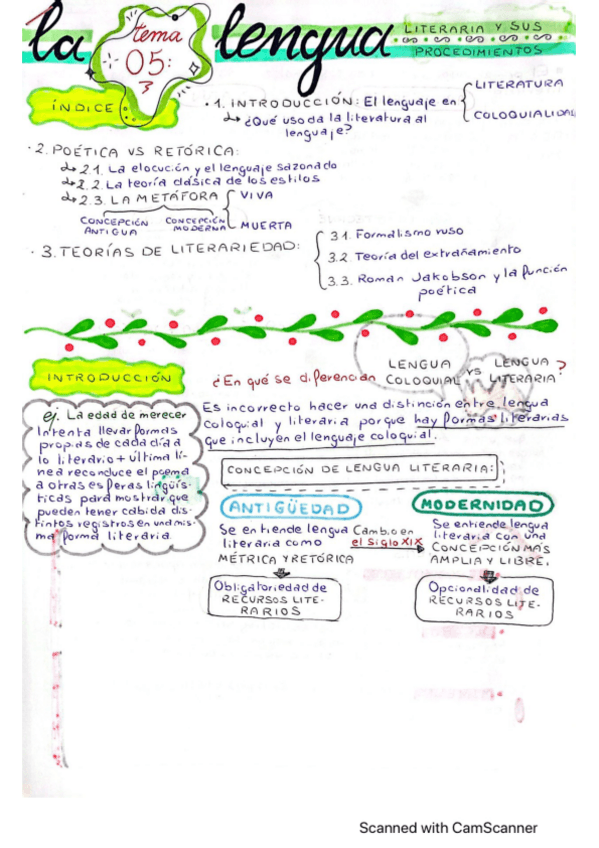 la
tema
05:
lengua
LITERARIA Y SUS
PROCEDIMIENTOS
ÍNDICE
· 1. INTRODUCCIÓN: El lenguaje en
LITERATURA
COLOQUIALIDAD
¿Qué uso da la literatura al
lenguaje?
· 2. POÉTICA VS RETÓRICA:
2.1. La elocución y el lenguaje sazonado
2.2. La teoría clásica de los estilos
2.3. LA METÁFORA
VIVA
MUERTA
CONCEPCIÓN
ANTIGUA
CONCEPCIÓN
MODERNA
· 3. TEORÍAS DE LITERARIEDAD:
3.1. Formalismo ruso
3.2. Teoría del extrañamiento
3.3. Roman Jakobson y la función
poética
INTRODUCCIÓN
¿En qué se diferencian
LENGUA
COLOQUIAL
VS
LENGUA
LITERARIA?
ej. La edad de merecer
Intenta llevar formas
propias de cada día a
lo literario + última lí-
nea reconduce el poema
a otras esferas lingüís-
ticas para mostrar que
pueden tener cabida dis-
tintos registros en una mis-
ma forma literaria.
Es incorrecto hacer una distinción entre lengua
coloquial y literaria porque hay formas literarias
que incluyen el lenguaje coloquial.
CONCEPCIÓN DE LENGUA LITERARIA:
ANTIGÜEDAD
Se entiende lengua
literaria como
MÉTRICA Y RETÓRICA
Obligatoriedad de
RECURSOS LITE-
RARIOS
Cambio en
el siglo XIX
MODERNIDAD
Se entiende lengua
literaria con una
CONCEPCIÓN MÁS
AMPLIA Y LIBRE.
Opcionalidad de
RECURSOS LITE-
RARIOS
Scanned with CamScanner